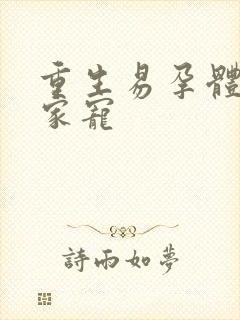 重生易孕體
家寵
詩雨如夢